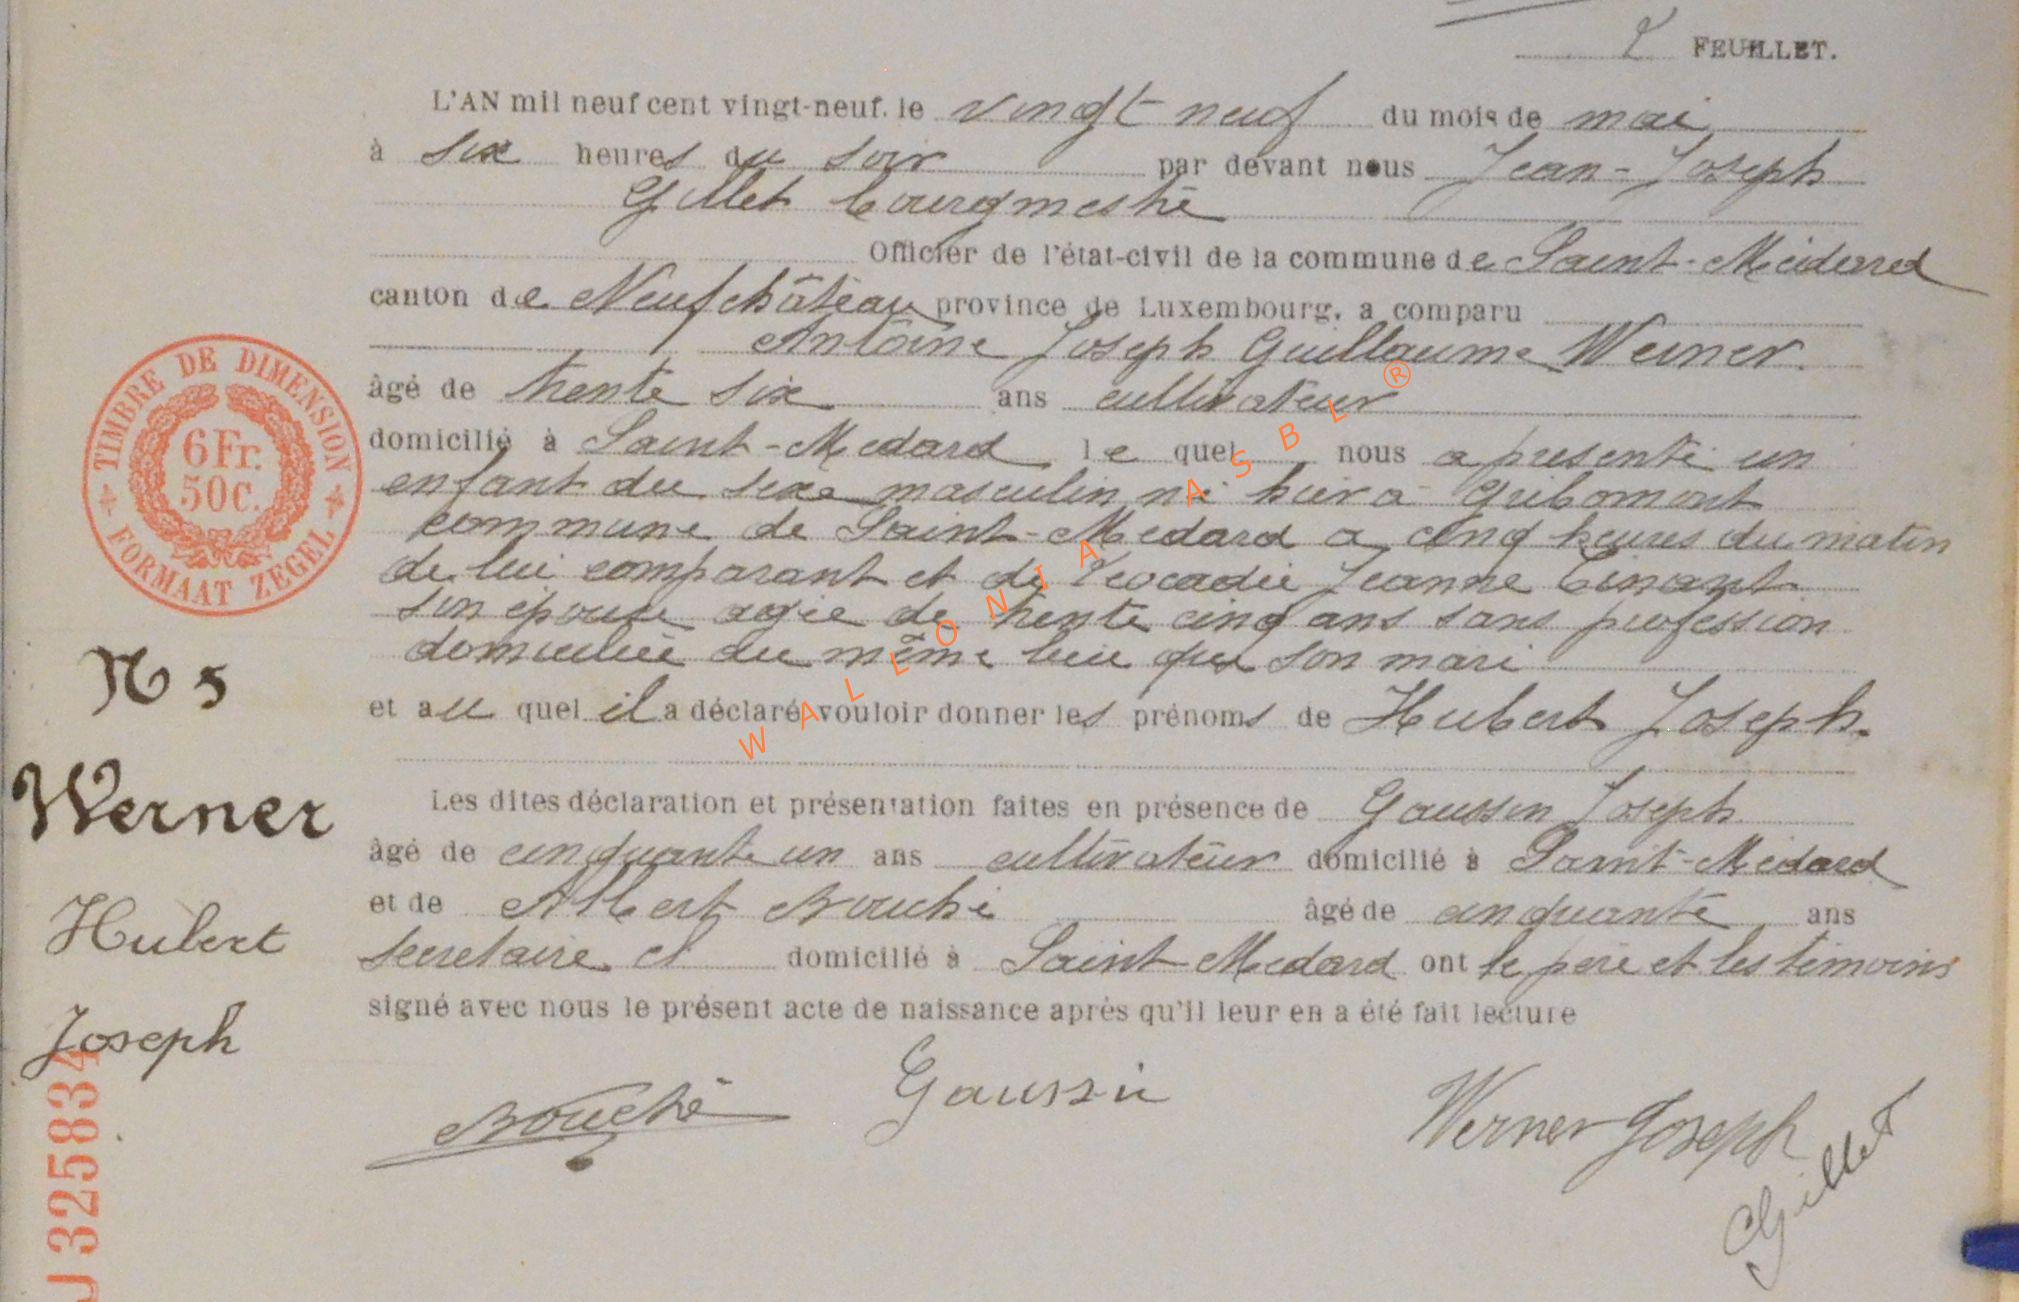 2 FEUILLET.
L'AN mil neuf cent vingt-neuf, le vingt neuf du mois de mai
à six heures du soir par devant nous Jean-Joseph
Gillet bourgmestre
Officier de l'état-civil de la commune de Saint-Médard
canton de Neufchâteau province de Luxembourg, a comparu
Antoine Joseph Guillaume Werner.
âgé de trente six ans cultivateur
domicilié à Saint-Médard lequel nous a présenté un
enfant du sexe masculin né hier à Gribomont
commune de Saint-Médard a cinq heures du matin
de lui comparant et de Léocadie Jeanne Tinant
son épouse agée de trente cinq ans sans profession
domiciliée au même lieu que son mari
et au quel il a déclaré vouloir donner les prénoms de Hubert Joseph.
Les dites déclaration et présentation faites en présence de Gaussin Joseph
âgé de cinquante un ans cultivateur domicilié à Saint-Médard
et de Albert Bouché âgé de cinquante ans
secrétaire cl domicilié à Saint-Médard ont le père et les témoins
signé avec nous le présent acte de naissance après qu'il leur en a été fait lecture
Bouché Gaussin Werner Joseph
Gillet
TIMBRE DE DIMENSION
6 Fr.
50 C.
FORMAAT ZEGEL
N 5
Werner
Hubert
Joseph
J 325834
WALLONIA ASBL ®